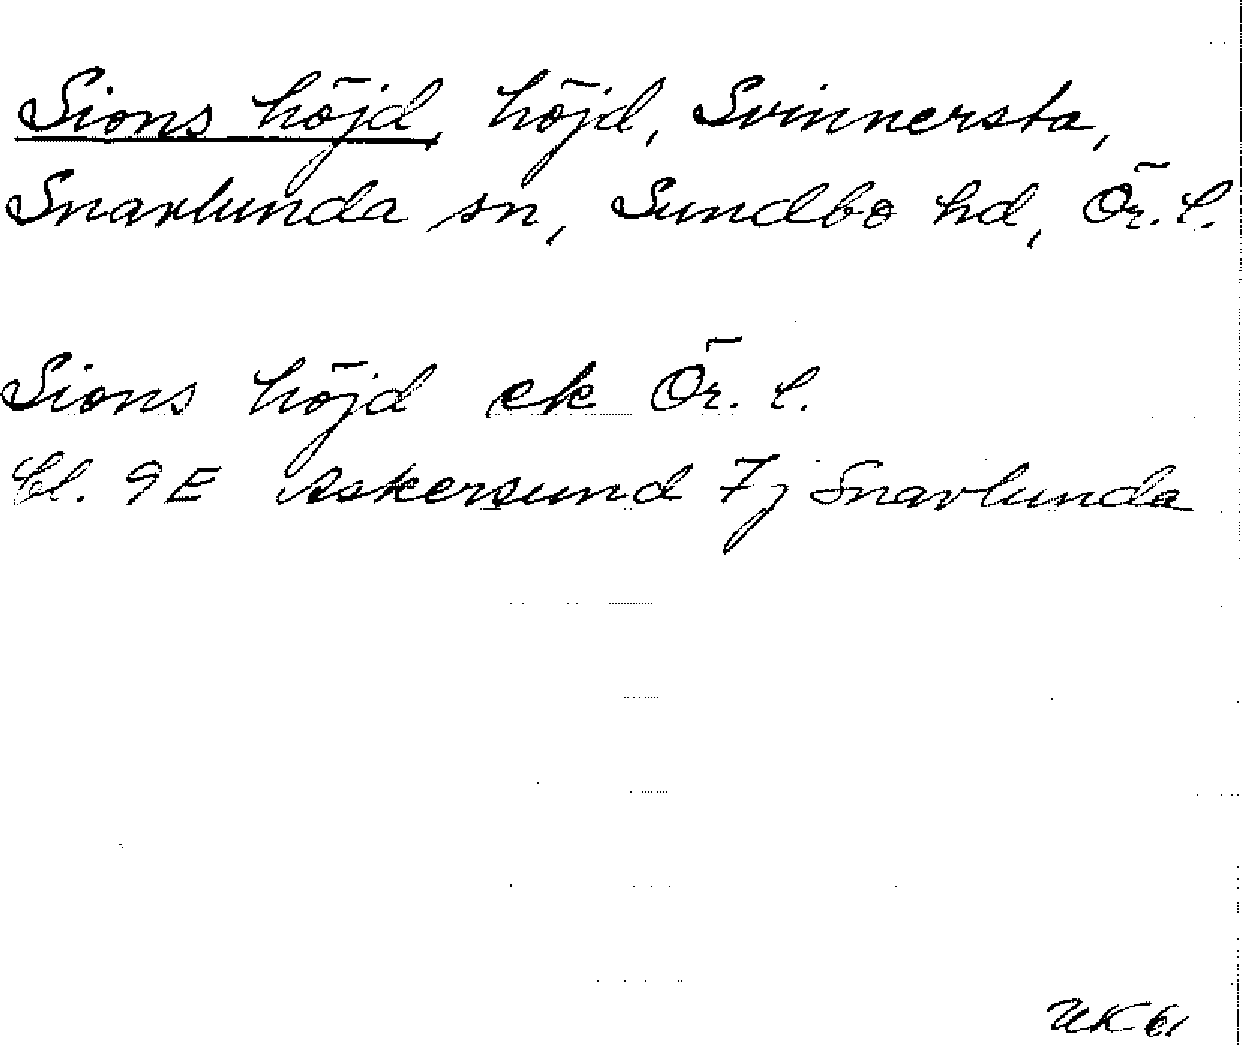 Sions höjd, höjd, Svinnersta,
Snavlunda sn, Sundbo hd, Ör. l.
Sions höjd ek Ör. l.
bl. 9E Askersund 7j Snavlunda
UK 61